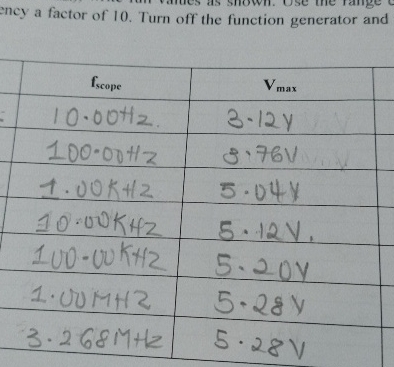 ency a factor of 10. Turn off the function generator and
fscope Vmax
10.00Hz. 3.12V
100.00Hz 3.76V
1.00KHz 5.04V
10.00KHz 5.12V.
100.00KHz 5.20V
1.00MHz 5.28V
3.268MHz 5.28V